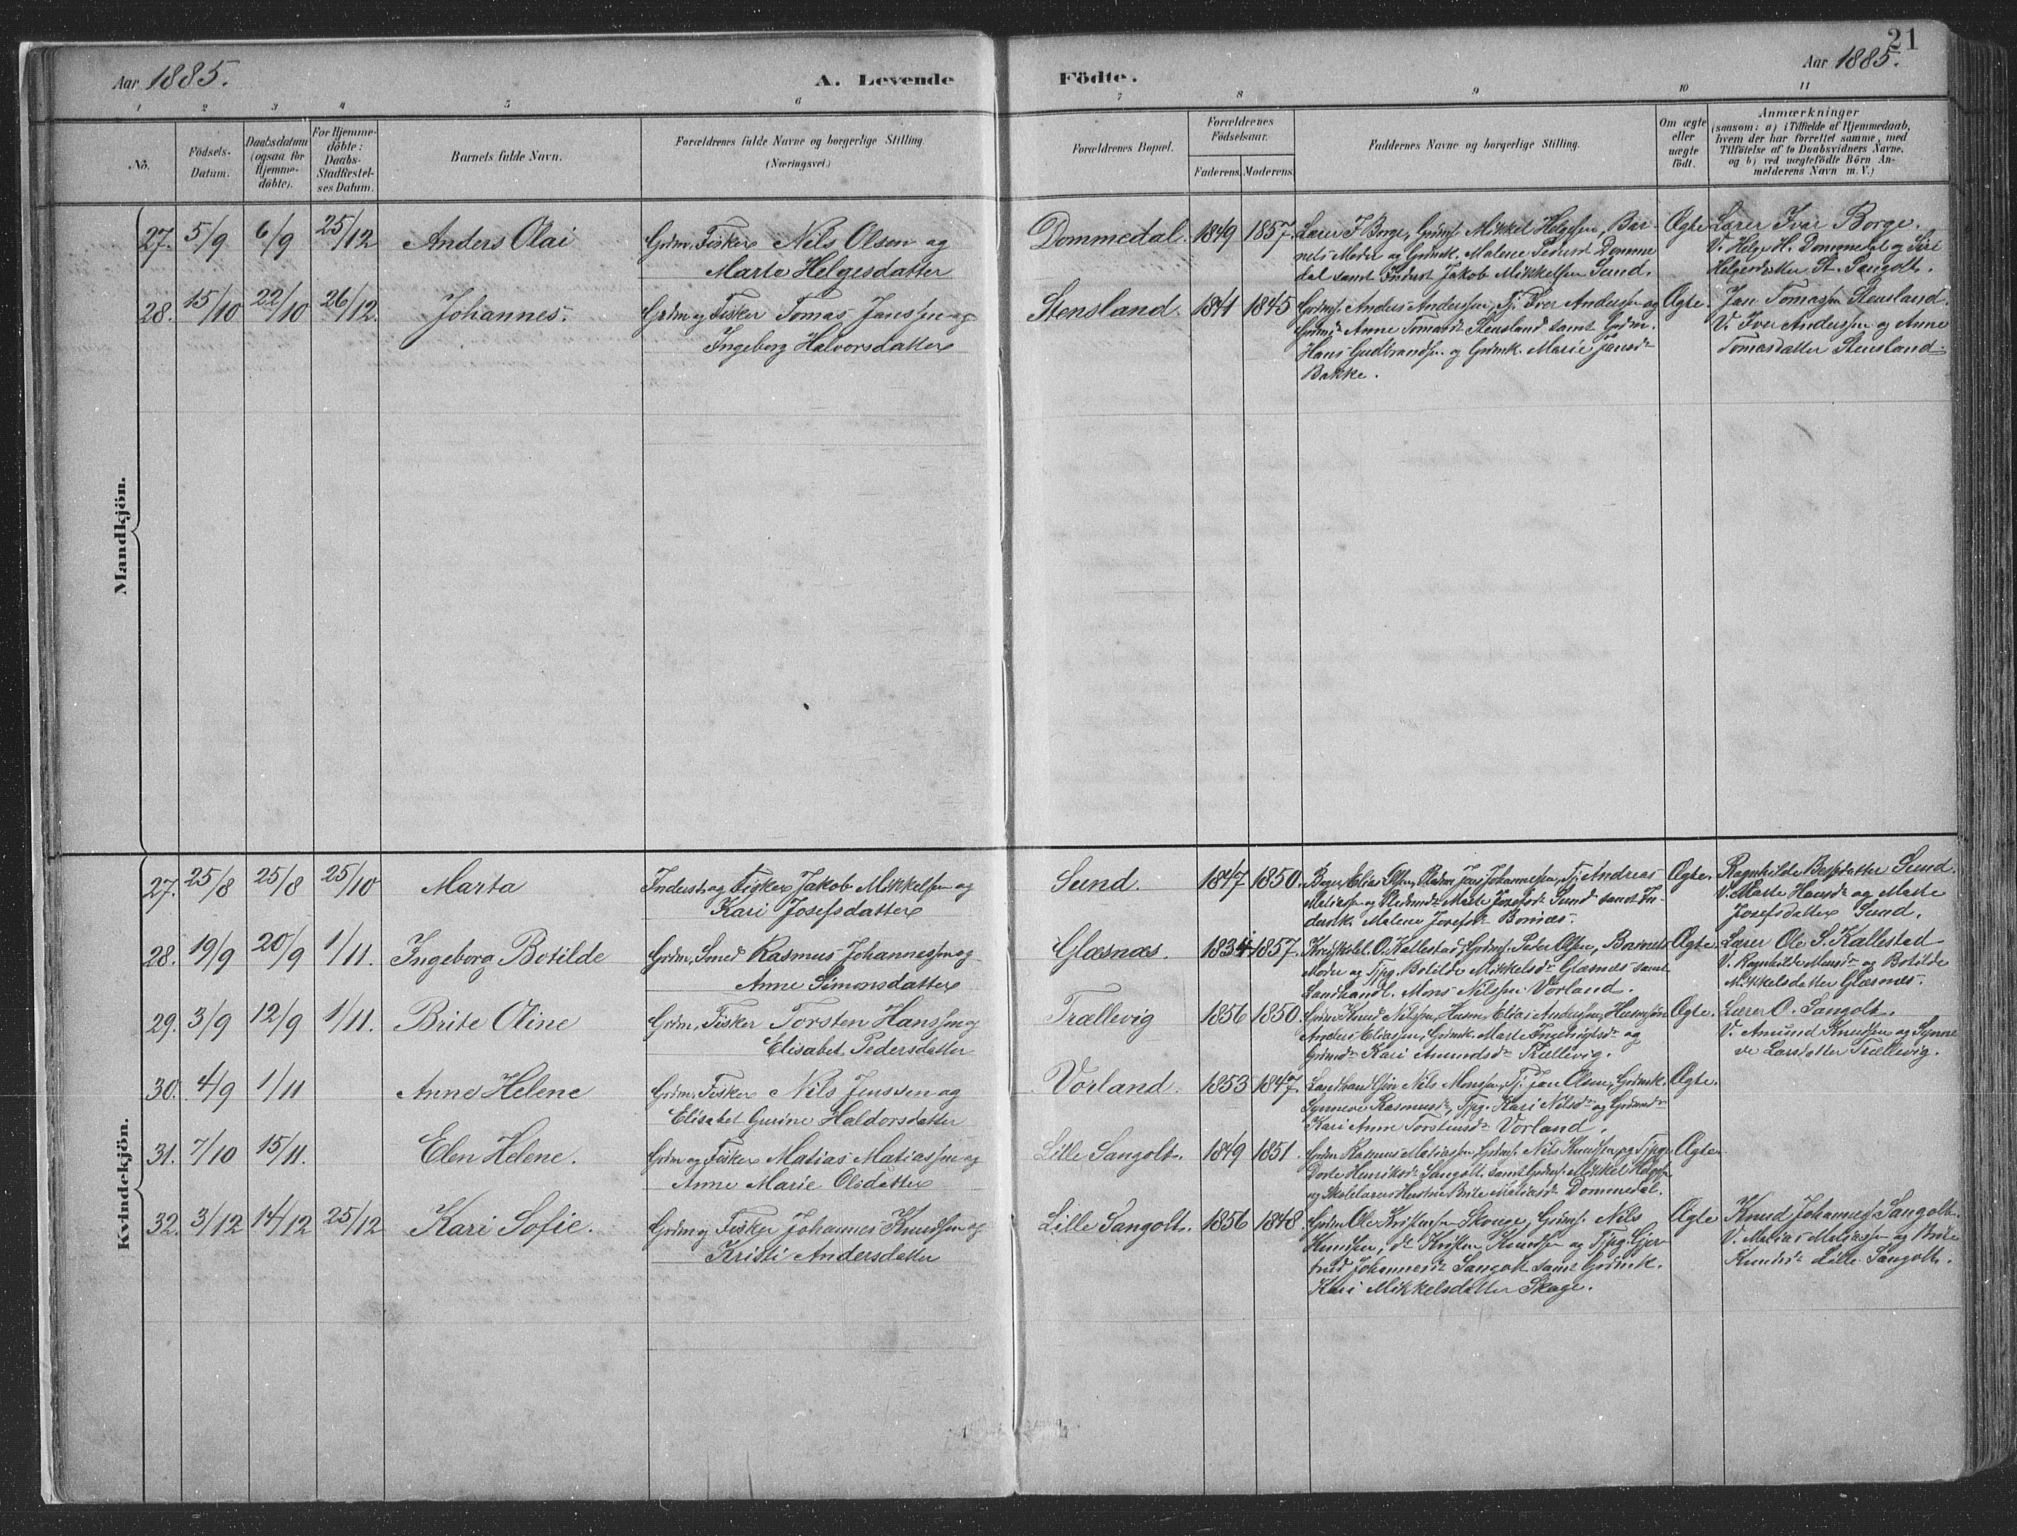 21
Aar 1885.
A. Levende
Födte.
Aar 1885.
1 2 3 4 5 6 7 8 9 10 11
No.
Födsels-
Datum.
Daabsdatum
(ogsaa for
Hjemme-
döbte).
For Hjemme-
döbte:
Daabs-
Stadfæstel-
ses Datum.
Barnets fulde Navn.
Forældrenes fulde Navne og borgerlige Stilling
(Næringsvei.)
Forældrenes Bopæl.
Forældrenes
Födselsaar.
Faderens. Moderens.
Faddernes Navne og borgerlige Stilling.
Om ægte
eller
uægte
födt.
Anmærkninger
(saasom: a) i Tilfælde af Hjemmedaab,
hvem der har forrettet samme, med
Tilföielse af to Daabsvidners Navne,
og b) ved uægtefödte Börn An-
melderens Navn m. V.)
Mandkjön.
27. 5/9 6/9 25/12 Anders Olai
Grdm. Fisker Nils Olsen og
Marte Helgesdatter
Dommedal. 1849 1857.
Lærer I Borge, Grdmf. Mikkel Helgesen, Bar-
nets Moder og Grdmk. Malene Pedersd Domme
dal samt Inderst Jakob Mikkelsen Sund.
Ægte.
Lærer Ivar Borge.
V. Helge H. Dommedal og Siri
Helgesdatter St. Sangolt.
28. 15/10 22/10 26/12. Johannes.
Grdm og Fisker Tomas Janssen og
Ingeborg Halvorsdatter
Stensland. 1841 1845
Grdmf. Anders Anderssen, Tj. Iver Anderssen og
Grdmd. Anne Tomasdr Stensland samt Grdm.
Hans Gudbrandsen og Grdmk. Marie Jansdr
Bakke.
Ægte.
Jan Tomassen Stensland.
V. Iver Anderssen og Anne
Tomasdatter Stensland.
Kvindekjön.
27. 25/8 25/8 25/10 Marta
Inderst og Fisker Jakob Mikkelsen og
Kari Josefsdatter
Sund. 1847 1850.
Johannessen, Tj. Andreas
Matiassen og Marte Josefsdr Sund samt In-
derstk. Malene Josefsdr Bonæs.
Ægte.
Ragnhilde Sund.
V. Marte Hansdr og Marte
Josefsdatter Sund.
28. 19/9 20/9 1/11. Ingeborg Botilde
Grdm. Smed Rasmus Johannessen og
Anne Simonsdatter
Glæsnæs. 1834 1857.
O. Kallestad, Grdmf. Peder Olsen, Barnets
Moder og Tjpg. Botilde Mikkelsdr Glæsnæs samt
Landhandl. Mons Nilssen Vorland.
Ægte.
Lærer Ole S. Kallestad
V. Ragnhilde Monsdr og Botilde
Mikkelsdatter Glæsnes.
29. 3/9 12/9 1/11. Brite Oline
Grdm. Fisker Torsten Hanssen og
Elisabet Pedersdatter
Trællevig 1856 1850.
Grdm Knud Nilssen, Husm. Elias Anderssen, Husmssøn
Anders Eliassen, Grdmk. Marte Ingebrigtsdr og
Grdmdr Kari Amundsdr Trællevig.
Ægte.
Lærer O. Sangolt.
V. Amund Knudssen og Synne
ve Larsdatter Trællevig.
30. 4/9 1/11 Anne Helene
Grdm. Fisker Nils Jenssen og
Elisabet Gurine Haldorsdatter
Vorland. 1853 1847.
Nils Monssen, Tj. Jan Olsen, Grdmk.
Synneve Rasmusdr, Tjpg. Kari Nilsdr og Grdmdr
Kari Anne Torstensdr Vorland.
Ægte.
31. 7/10 15/11. Elen Helene.
Grdm og Fisker Matias Matiassen og
Anne Marie Olsdatter
Lille Sangolt. 1849 1851.
Grdm Rasmus Matiassen, Grdmf. Nils Knudssen og Tjpg.
Dorte Henriksdr Sangolt samt Grdmf. Mikkel Helgesen
og Skolelærer Hustru Brite Matiasdr Dommedal.
Ægte
32. 3/12 14/12 25/12 Kari Sofie.
Grdm og Fisker Johannes Knudssen og
Kristi Andersdatter
Lille Sangolt. 1856 1848.
Grdm Ole Kristensen Skauge, Grdmf. Nils
Knudssen, do Kristen Knudssen og Tjpg. Gjer
trud Johannesdr Sangolt samt Grdmk.
Kari Mikkelsdatter Skage.
Ægte
Knud Johannesn Sangolt.
V. Matias Matiassen og Brite
Knudsdr Lille Sangolt.